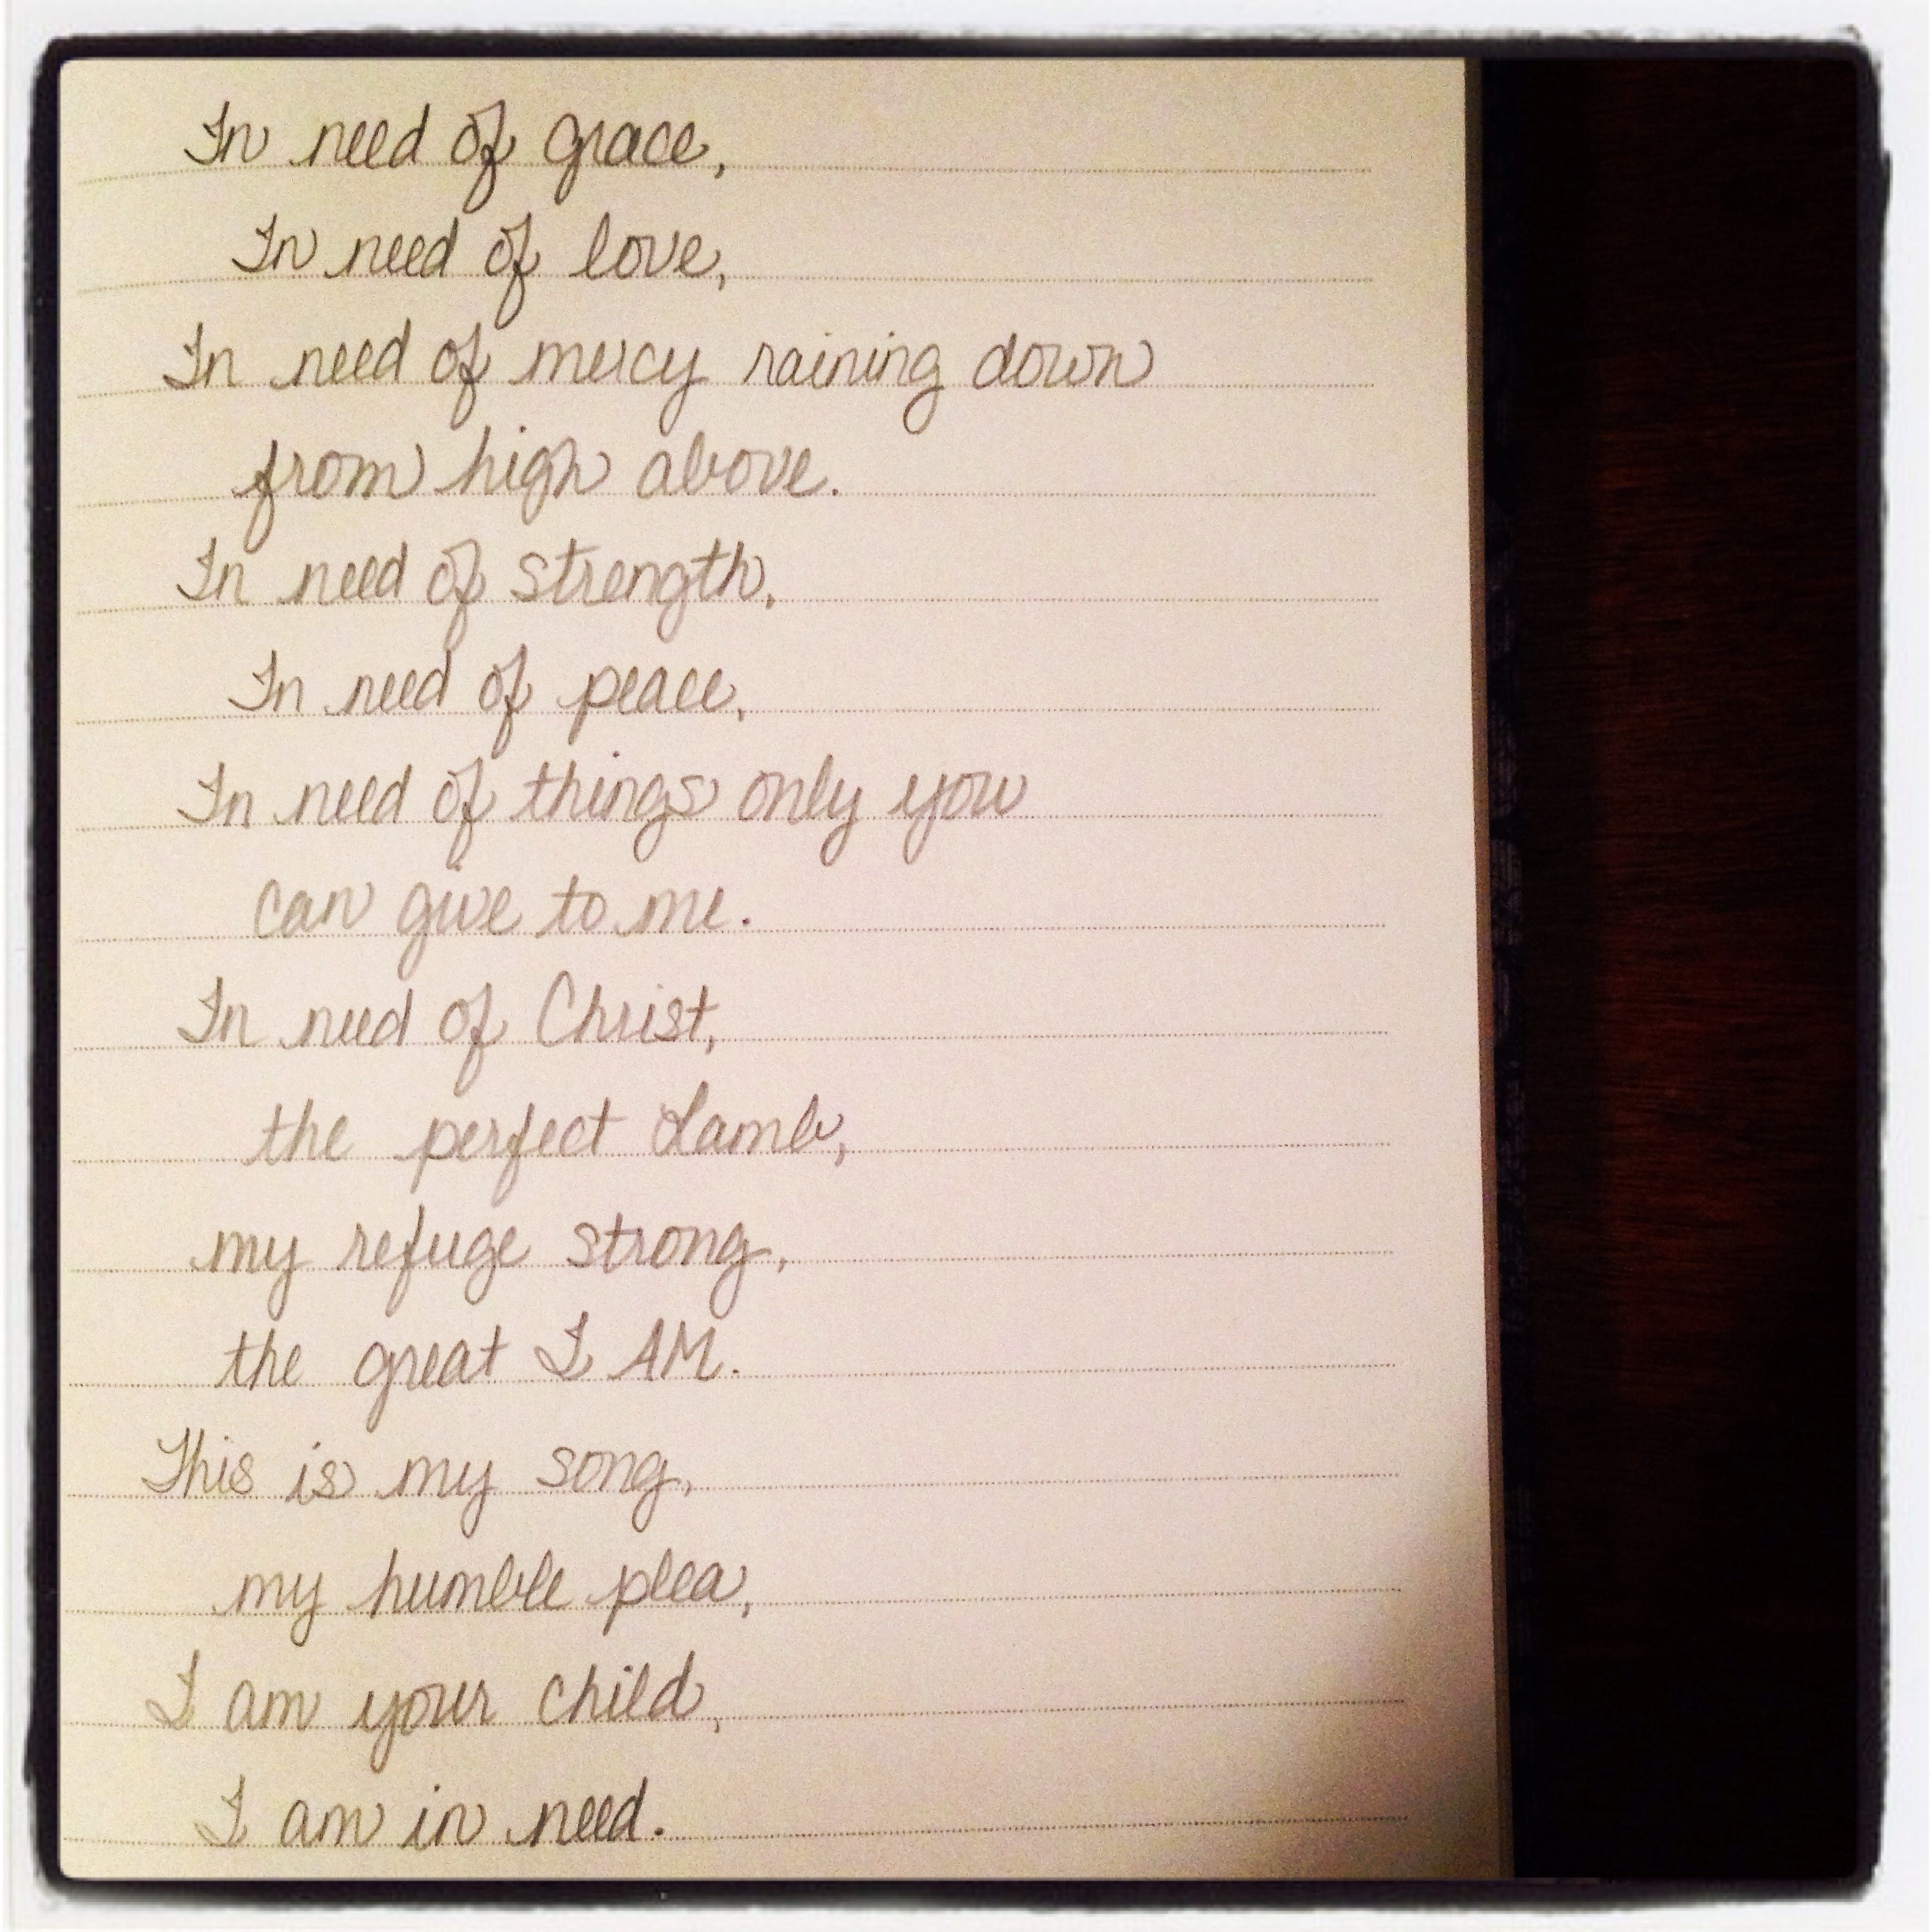 In need of grace,
In need of love,
In need of mercy raining down
from high above.
In need of strength,
In need of peace,
In need of things only you
can give to me.
In need of Christ,
the perfect Lamb,
my refuge strong,
the great I AM.
This is my song,
my humble plea,
I am your child,
I am in need.